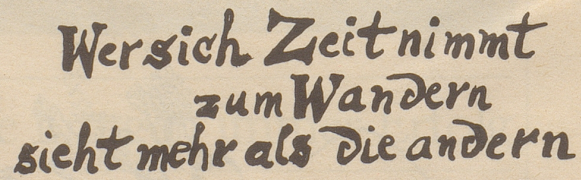 Wer sich Zeit nimmt
zum Wandern
sieht mehr als die andern